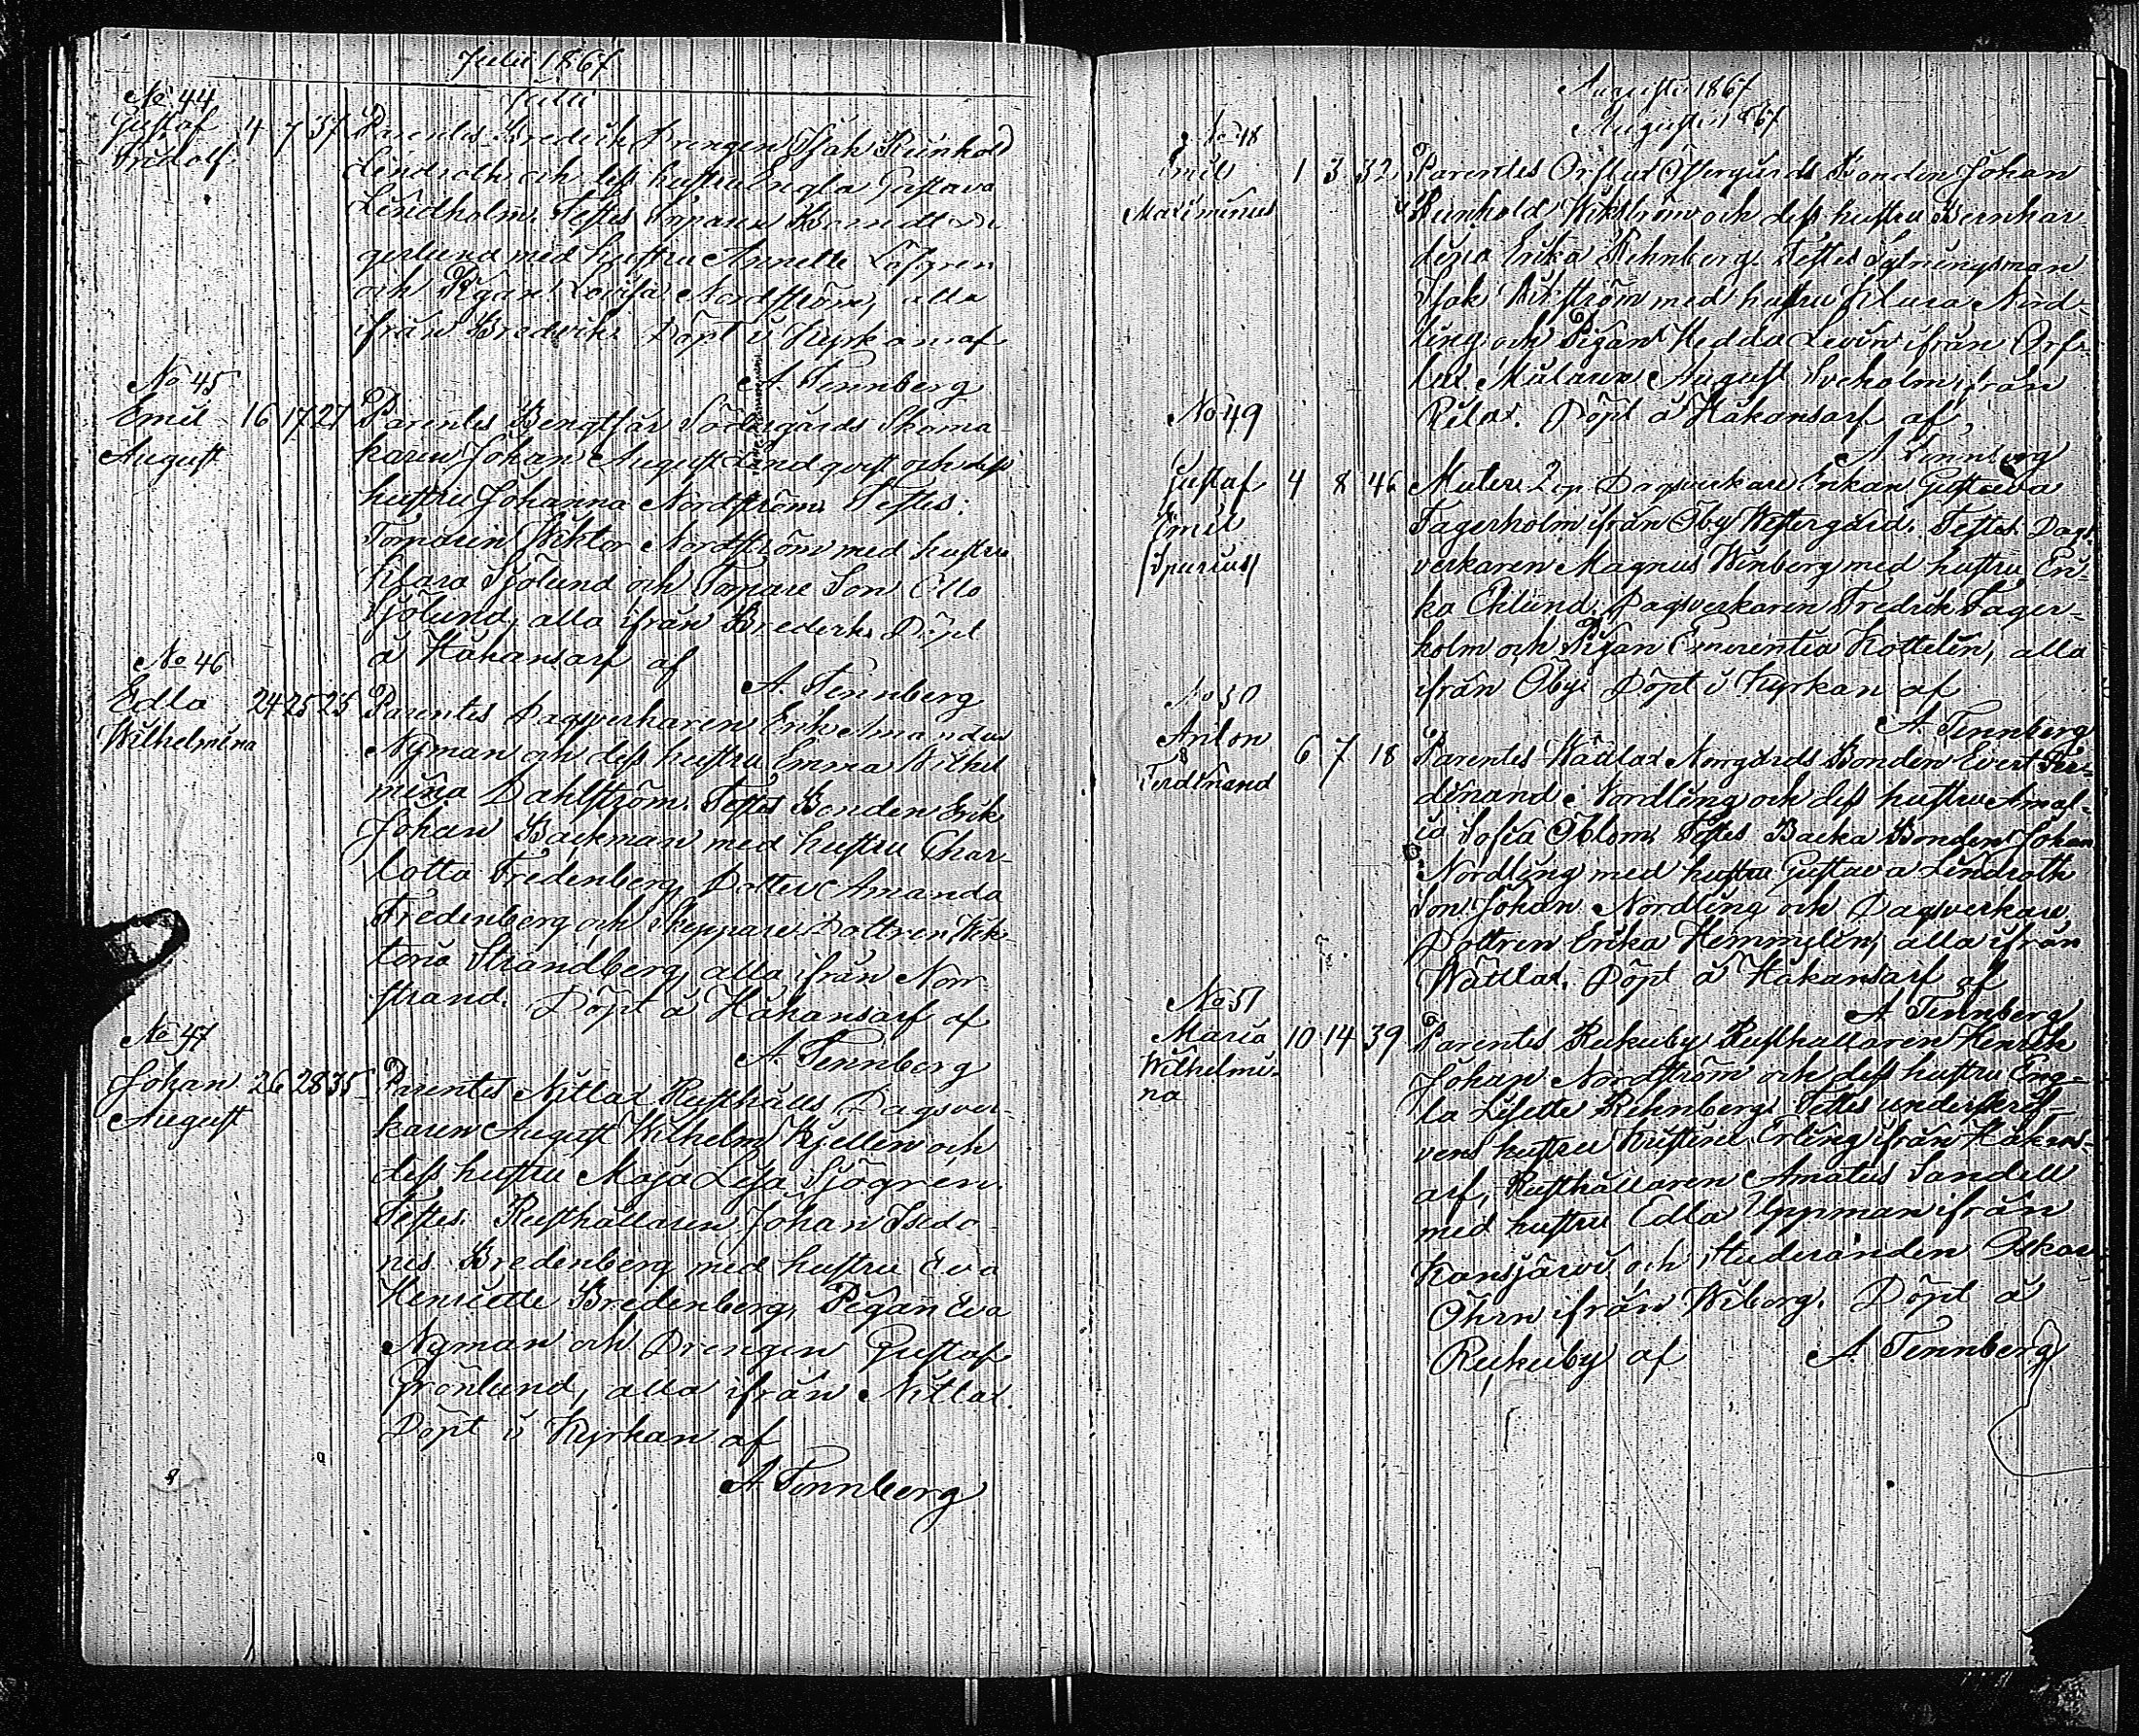 Julii 1867
Julii
No 44
Gustaf 4 7 37 Parentes Bredvik Drengen Isak Reinhold
Fridolf Lindroth och dess hustru Engla Gustava
Lindholm. Testes Torparen
gerlund med hustru Annette Löfgren
och Pigan Lovisa Nordström, alla
ifrån Bredvik. Döpt i Kyrkan af
A. Tennberg
No 45
Emil 16 17 27 Parentes Bengtsår Södergårds Skoma-
August karen Johan August Lindqvist och dess
hustru Johanna Nordström. Testes:
Torparen Viktor Nordström med hustru
Klara Sjölund och Torpare Son Otto
Sjölund, alla ifrån Bredvik. Döpt
å Håkansarf af
A. Tennberg
No 46
Edla 24 25 25 Parentes Dagsverkaren Erik Amandus
Wilhelmina Nyman och dess hustru Emma Wilhel
mina Dahlström. Testes Bonden Erik
Johan Backman med hustru Char-
lotta Fredenberg, Dotter Amanda
Fredenberg och Skeppare Dottren Wik-
toria Strandberg, alla ifrån Norr-
strand. Döpt å Håkansarf af
A. Tennberg
No 47
Johan 26 28 35 Parentes Nitlax Rusthålls Dagsver-
August karen August Wilhelm Kjellin och
dess hustru Maja Lisa Sjögren.
Testes. Rusthållaren Johan Isido-
rus Bredenberg med hustru Eva
Henriette Bredenberg, Pigan Eva
Nyman och Drengen Gustaf
Grönlund, alla ifrån Nitlax.
Döpt i Kyrkan af
A. Tennberg
Augusti 1867
Augusti 1867
No 48
Emil 1 3 32 Parentes Orslax Östergårds Bonden Johan
Maximinus Reinhold Wikström och dess hustru Bernhar
dina Erika Rehnberg. Testes Sytningsman
Isak Wikström med hustru Klara Nord-
ling och Pigan Hedda Levin ifrån Ors-
lax. Målaren August Sveholm ifrån
Rilax. Döpt å Håkansarf af,
A Tennberg
No 49
Gustaf 4 8 46 Mater. Dagsverkare Enkan Gustava
Emil Fagerholm ifrån Öby Westergård. Testes Dags-
(Spurius) verkaren Magnus Winberg med hustru Eri-
ka Eklund. Dagsverkaren Fredrik Fager-
holm och Pigan Emerentia Kottelin, alla
ifrån Öby. Döpt i Kyrkan af
A. Tennberg
No 50
Anton 6 7 18 Parentes Wättlax Norrgårds Bonden Evert Fer-
Ferdinand dinand Nordling och dess hustru Amal-
ia Sofia Öblom. Testes Backa Bonden Johan
Nordling med hustru Gustava Lindroth
Son Johan Nordling och Dagsverkare
Dottren Erika Hemmelin, alla ifrån
Wättlax. Döpt å Håkansarf af
A Tennberg
No 51
Maria 10 14 39 Parentes Rukuby Rusthållaren Henrik
Wilhelmi- Johan Nordström och dess hustru Eng-
na la Lisette Rehnberg. Testes underskrif-
vens hustru Kristina Erling ifrån Håkans-
arf, Rusthållaren Amatus Sandell
med hustru Edla Uppman ifrån
Kansjärvi och Studeranden Oskar
Öhrn ifrån Wiborg. Döpt å
Rukuby af A. Tennberg